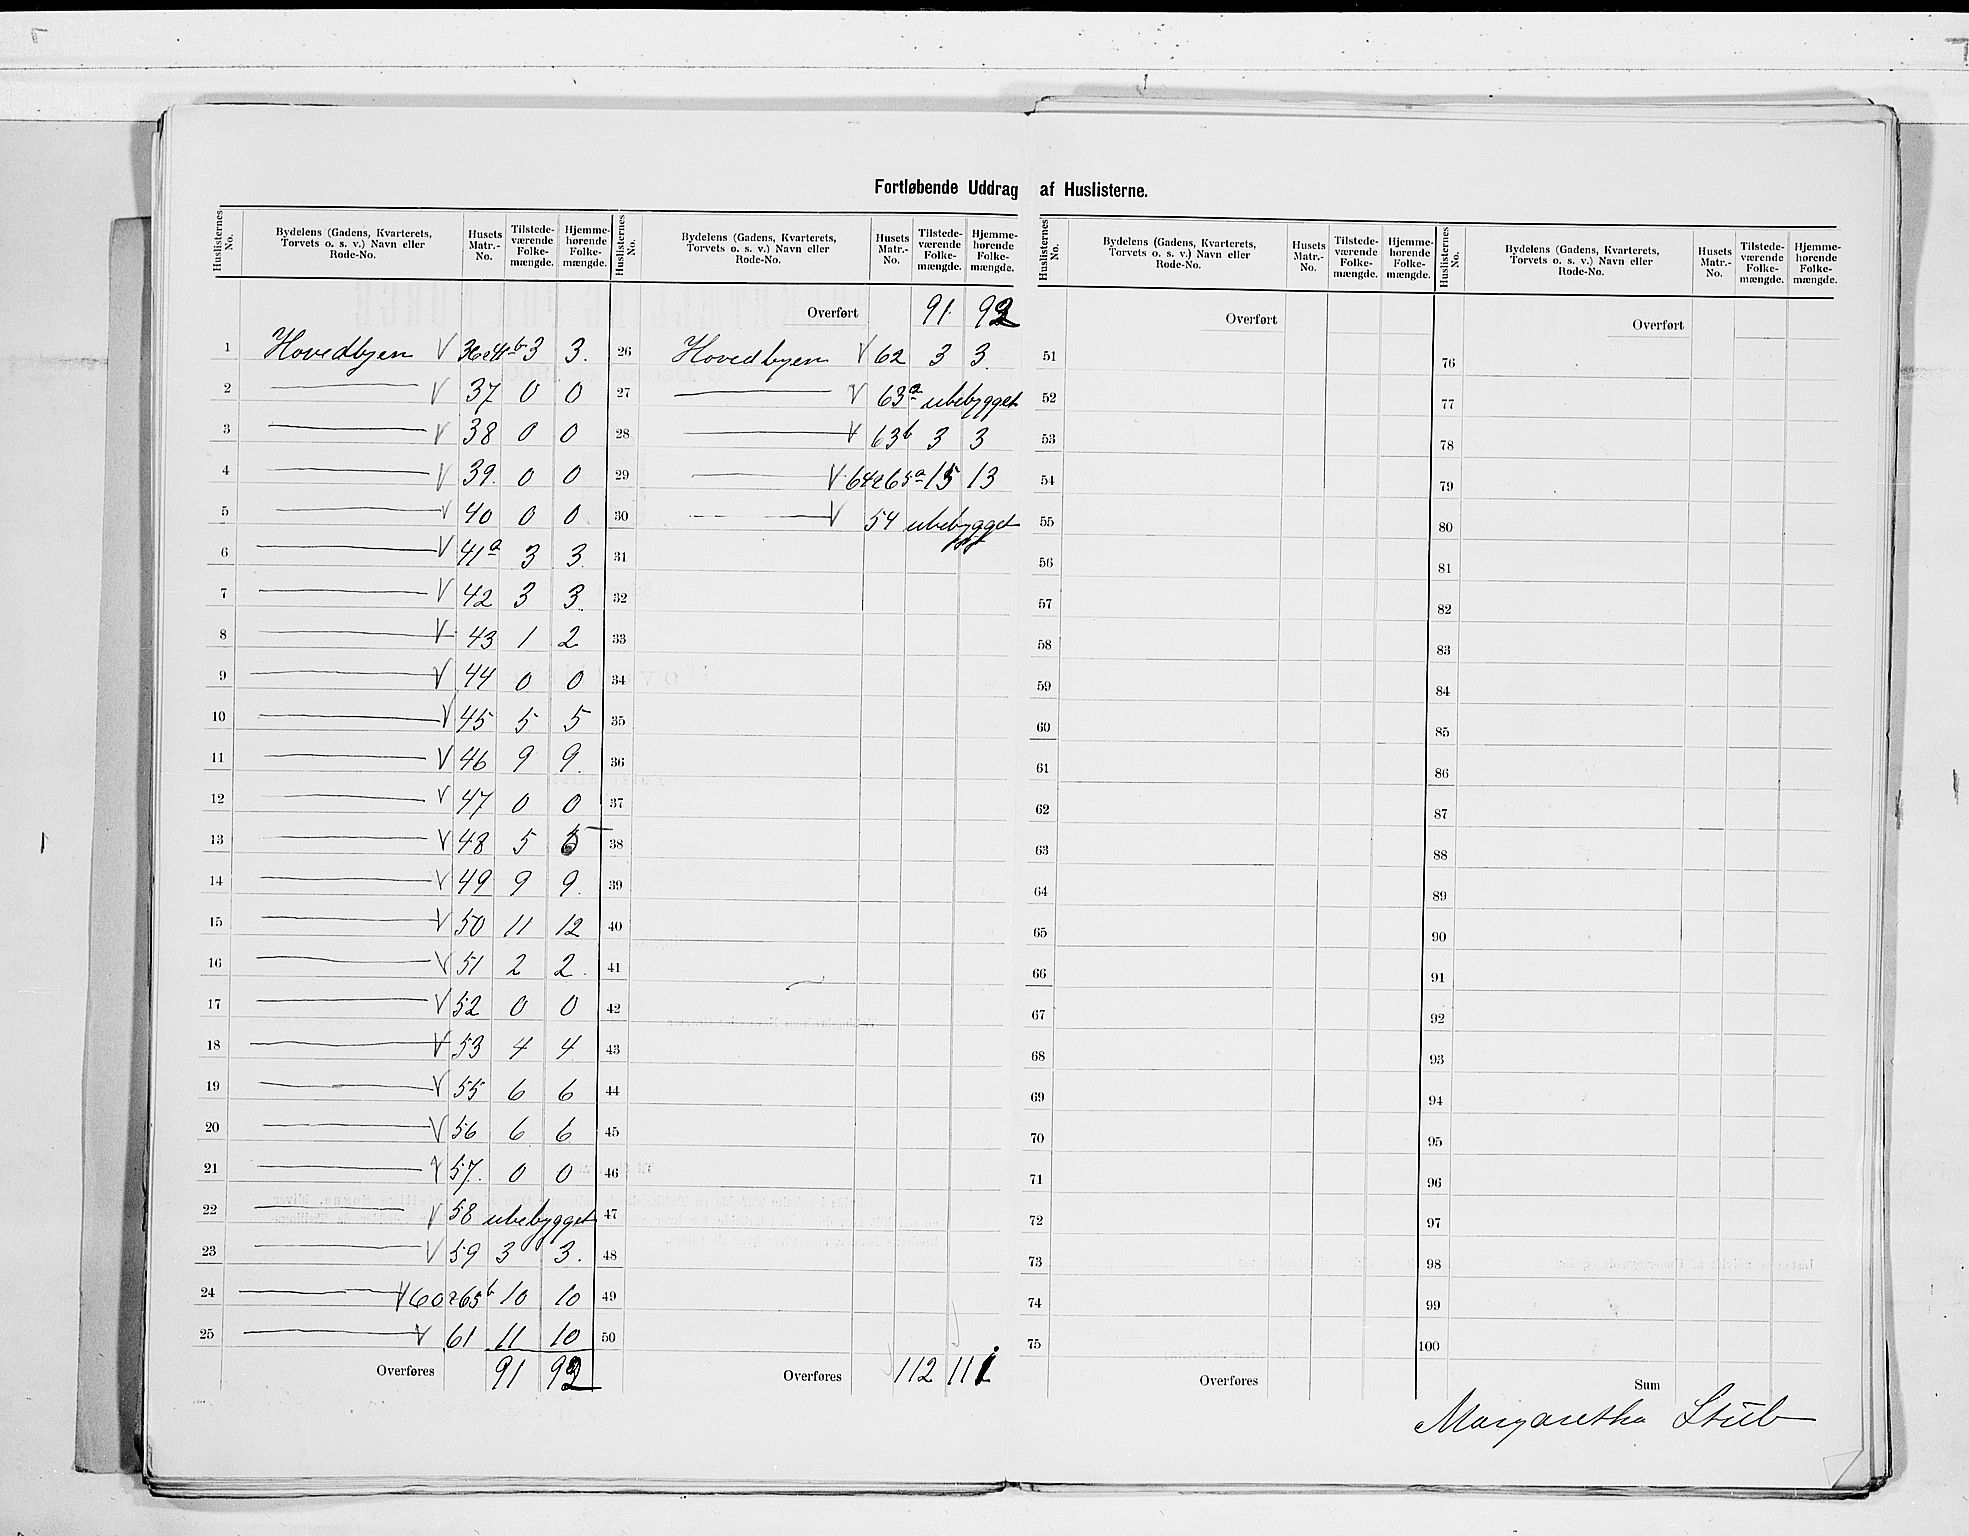 Fortløbende Uddrag af Huslisterne.
Huslisternes No. Bydelens (Gadens, Kvarterets, Torvets o. s. v.) Navn eller Rode-No. Husets Matr.-No. Tilstedeværende Folkemængde. Hjemmehørende Folkemængde.
1 Hovedbyen V 36 & 41b 3 3.
2 — V 37 0 0
3 — V 38 0 0
4 — V 39. 0 0
5 — V 40 0 0
6 — V 41a 3 3.
7 — V 42 3 3.
8 — V 43 1 2
9 — V 44 0 0
10 — V 45 5 5
11 — V 46 9 9.
12 — V 47 0 0
13 — V 48 5 5
14 — V 49 9 9.
15 — V 50 11 12
16 — V 51 2 2.
17 — V 52 0 0
18 — V 53 4 4
19 — V 55 6 6
20 — V 56 6 6
21 — V 57. 0 0
22 — V 58 ubebygget
23 — V 59 3 3.
24 — V 60 & 65b 10 10
25 — V 61 11 10
Overføres 91 92
Huslisternes No. Bydelens (Gadens, Kvarterets, Torvets o. s. v.) Navn eller Rode-No. Husets Matr.-No. Tilstedeværende Folkemængde. Hjemmehørende Folkemængde.
Overført 91 92
26 Hovedbyen V 62 3 3.
27 — V 63a ubebygget
28 — V 63b 3 3
29 — V 64 & 65a 15 13
30 — V 54 ubebygget
31
32
33
34
35
36
37
38
39
40
41
42
43
44
45
46
47
48
49
50
Overføres 112 111
Huslisternes No. Bydelens (Gadens, Kvarterets, Torvets o. s. v.) Navn eller Rode-No. Husets Matr.-No. Tilstedeværende Folkemængde. Hjemmehørende Folkemængde.
Overført
51
52
53
54
55
56
57
58
59
60
61
62
63
64
65
66
67
68
69
70
71
72
73
74
75
Overføres
Huslisternes No. Bydelens (Gadens, Kvarterets, Torvets o. s. v.) Navn eller Rode-No. Husets Matr.-No. Tilstedeværende Folkemængde. Hjemmehørende Folkemængde.
Overført
76
77
78
79
80
81
82
83
84
85
86
87
88
89
90
91
92
93
94
95
96
97
98
99
100
Sum
Margaretha Stub